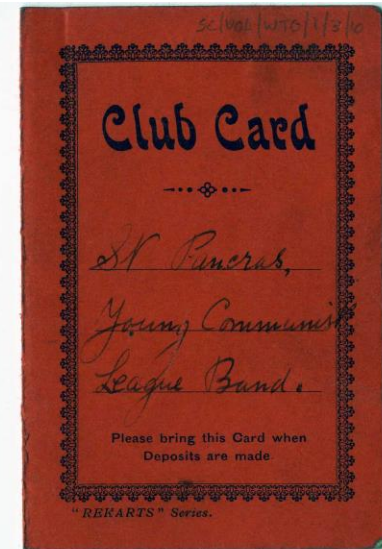 SC/VOL/WTB/1/3/10
Club Card
St Pancras,
Young Communist
League Band.
Please bring this Card when
Deposits are made
"REKARTS" Series.